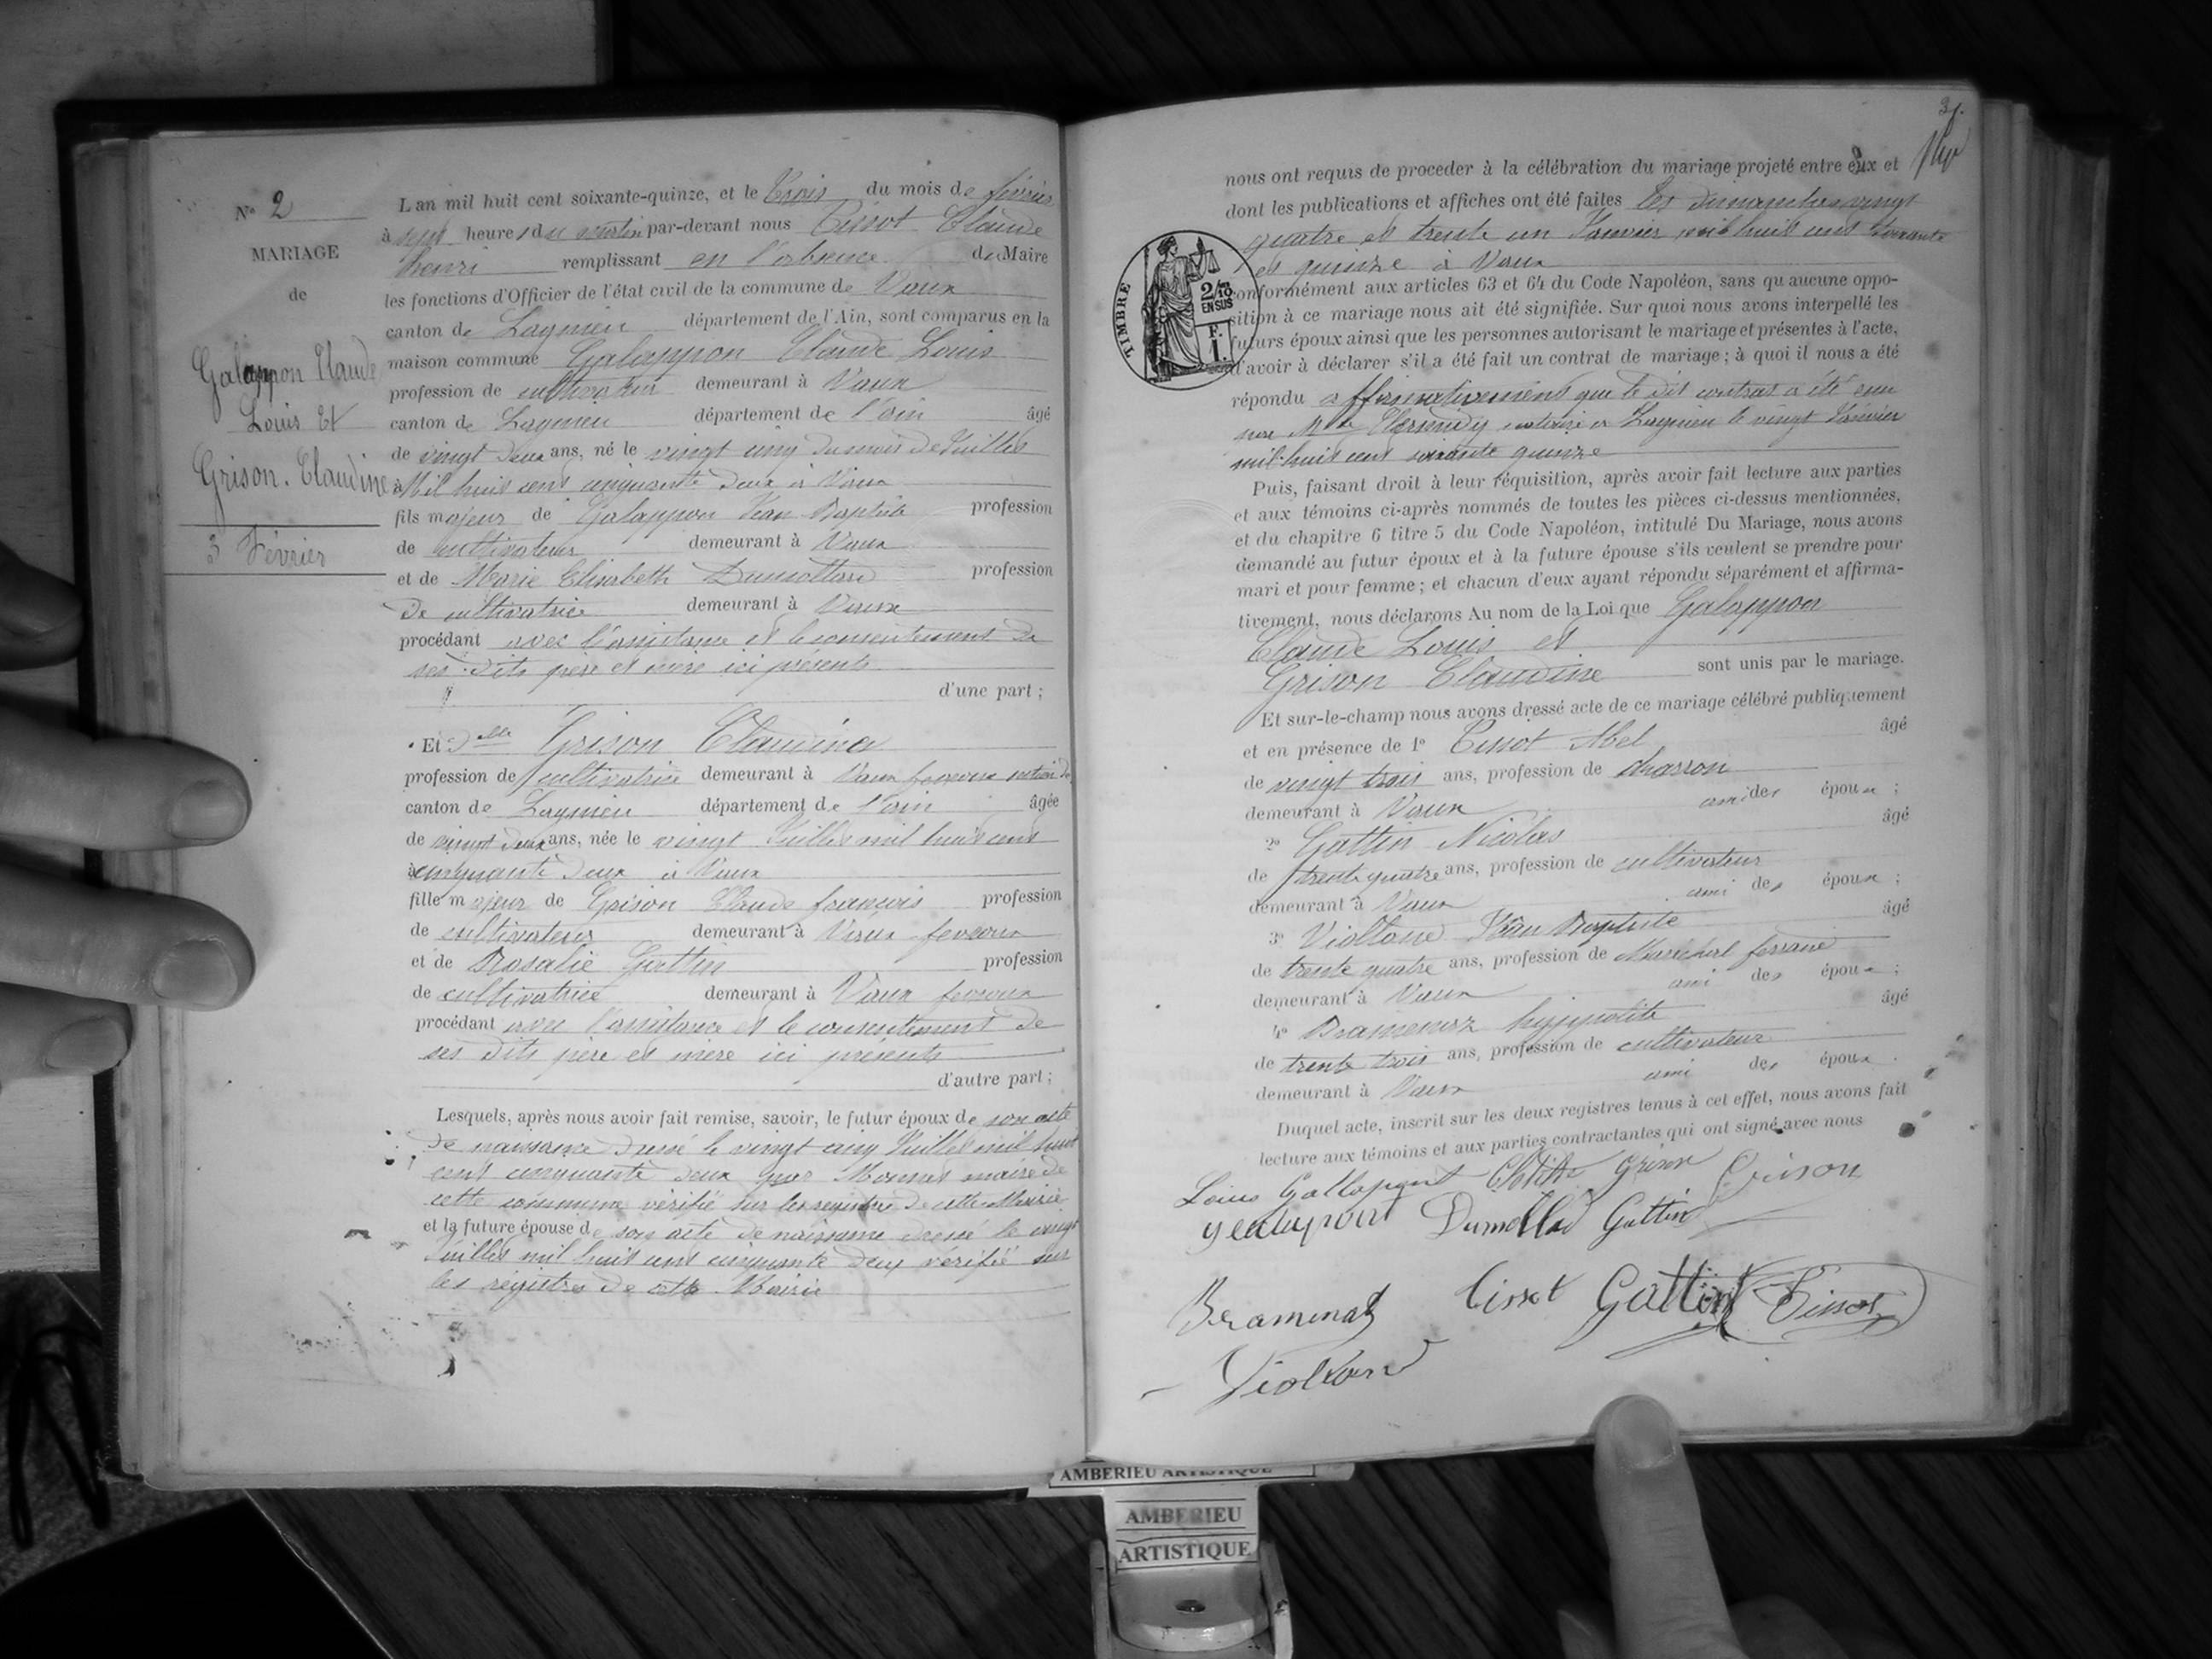 N° 2
MARIAGE
de
Galappon Claude
Louis Et
Grison. Claudine
3 Février
L an mil huit cent soixante-quinze, et le Trois du mois de février
à sept heures du matin par-devant nous Tissot Claude
henri remplissant en l'absence du Maire
les fonctions d'Officier de l'état civil de la commune de Vaux
canton de Lagnieu département de l'Ain, sont comparus en la
maison commune Galappon Claude Louis
profession de cultivateur demeurant à Vaux
canton de Lagnieu département de l'ain âgé
de vingt deux ans, né le vingt cinq du mois de Juillet
à Mil huit cent cinquante deux à Vaux
fils majeur de Galappon Jean Baptiste profession
de cultivateur demeurant à Vaux
et de Marie Elisabeth Dumollard profession
de cultivatrice demeurant à Vaux
procédant avec l'assistance et le consentement de
ses dits père et mère ici présents
d'une part ;
Et Delle Grison Claudine
profession de cultivatrice demeurant à Vaux fevroux
canton de Lagnieu département de l'ain âgée
de vingt deux ans, née le vingt Juillet mil huit cent
à cinquante deux à Vaux
fille majeur de Grison Claude francois profession
de cultivateur demeurant à Vaux fevroux
et de Rosalie Gattin profession
de cultivatrice demeurant à Vaux fevroux
procédant avec l'assistance et le consentement de
ses dits père et mère ici présents
d'autre part ;
Lesquels, après nous avoir fait remise, savoir, le futur époux de son acte
de naissance dressé le vingt cinq Juillet mil huit
cent cinquante deux par maire de
cette commune vérifié sur les registres de cette Mairie
et la future épouse de son acte de naissance dressé le vingt
Juillet mil huit cent cinquante deux vérifié sur
les régistres de cette Mairie
31.
nous ont requis de proceder à la célébration du mariage projeté entre eux et
dont les publications et affiches ont été faites les dimanches vingt
quatre et trente un Janvier mil huit cent soixante
et quinze à Vaux
TIMBRE
2/10
EN SUS
F.
1.
conformément aux articles 63 et 64 du Code Napoléon, sans qu aucune oppo-
sition à ce mariage nous ait été signifiée. Sur quoi nous avons interpellé les
futurs époux ainsi que les personnes autorisant le mariage et présentes à l'acte,
d'avoir à déclarer s'il a été fait un contrat de mariage ; à quoi il nous a été
répondu affirmativement que le dit contrat a été
notaire à Lagnieu le vingt Janvier
mil huit cent soixante quinze
Puis, faisant droit à leur réquisition, après avoir fait lecture aux parties
et aux témoins ci-après nommés de toutes les pièces ci-dessus mentionnées,
et du chapitre 6 titre 5 du Code Napoléon, intitulé Du Mariage, nous avons
demandé au futur époux et à la future épouse s'ils veulent se prendre pour
mari et pour femme ; et chacun d'eux ayant répondu séparément et affirma-
tivement, nous déclarons Au nom de la Loi que Galappon
Claude Louis et
Grison Claudine sont unis par le mariage.
Et sur-le-champ nous avons dressé acte de ce mariage célébré publiquement
et en présence de 1° Tissot Abel âgé
de vingt trois ans, profession de charron
demeurant à Vaux ami des époux ;
2° Gattin Nicolas âgé
de trente quatre ans, profession de cultivateur
demeurant à Vaux ami des époux ;
3° Violland Jean Baptiste âgé
de trente quatre ans, profession de Maréchal ferrand
demeurant à Vaux ami des époux ;
4° Bramerez hyppolite âgé
de trente trois ans, profession de cultivateur
demeurant à Vaux ami des époux.
Duquel acte, inscrit sur les deux registres tenus à cet effet, nous avons fait
lecture aux témoins et aux parties contractantes qui ont signé avec nous
Louis Gallapont Grison Grison
Dumollard Gattin
Tissot Gattin Tissot
Violland
AMBERIEU ARTISTIQUE
AMBERIEU
ARTISTIQUE